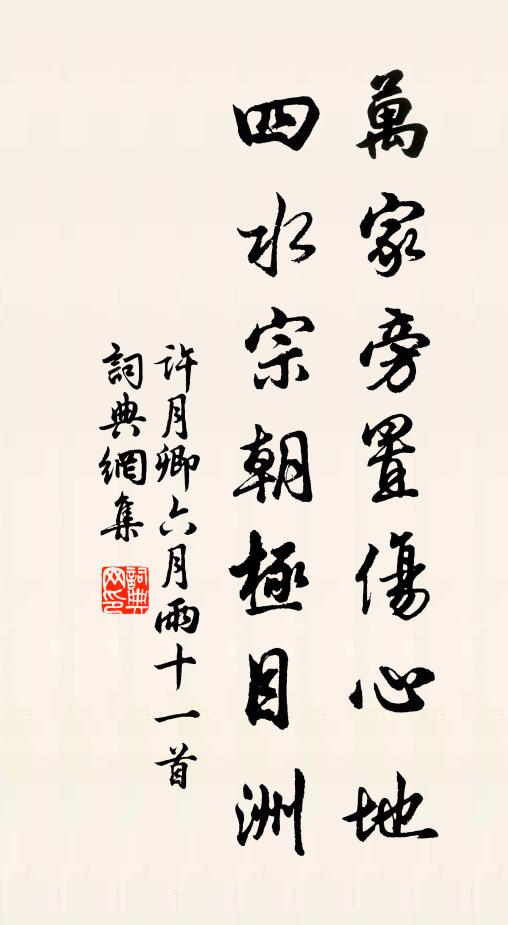 萬家旁置傷心地
四水宗朝極目洲
許月卿六月雨十一首
詞典網集
詞典網印